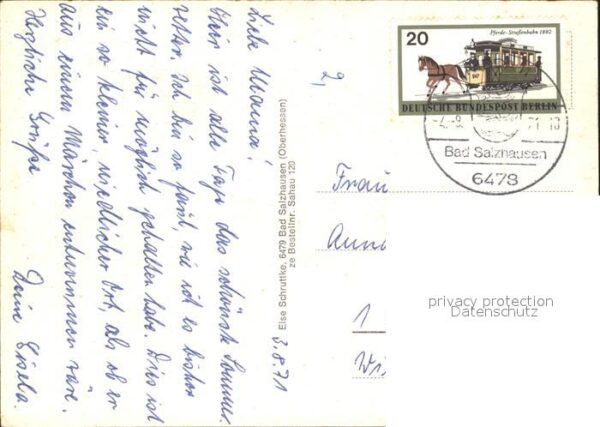 Liebe Mama!
Hier ist alle Tage das schönste Sommer-
wetter. Ich bin so faul, wie ich es bisher
nicht für möglich gehalten habe. Dies ist
ein so kleiner, niedlicher Ort, als ob er
aus einem Märchen entnommen wäre.
Herzliche Grüße
Deine Gisela.
3.8.71
Else Schruttke, 6479 Bad Salzhausen (Oberhessen)
ze Bestellnr. Sahau 120
2,
Pferde-Straßenbahn 1882
20
DEUTSCHE BUNDESPOST BERLIN
Bad Salzhausen
6479
Frau
Anna
1
privacy protection
Datenschutz